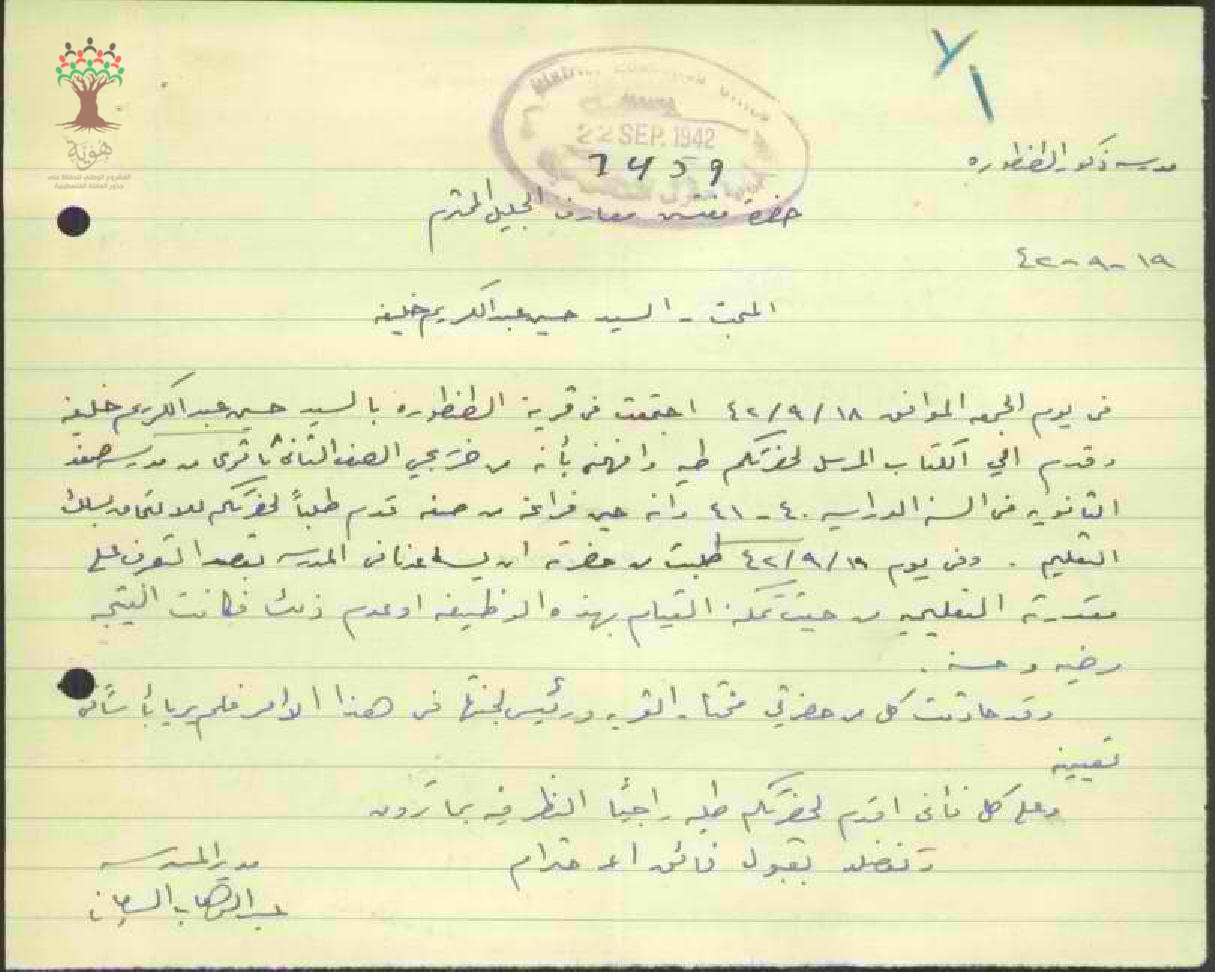 هوية
المشروع الوطني للحفاظ على
جذور العائلة الفلسطينية
DISTRICT EDUCATION OFFICE
22 SEP. 1942
7459
مدرسة ذكور الطنطوره
حضرة مفتش معارف الجليل المحترم
١٩ - ٩ - ٤٢
المبحث - السيد حسين عبد الكريم خليفه
في يوم الجمعه الموافق ١٨/٩/٤٢ اجتمعت في قرية الطنطوره بالسيد حسين عبد الكريم خليفه
وقدم الي الكتاب المرسل لحضرتكم طيه وافهمني بأنه من خريجي الصف الثاني ثانوي من مدرسة صفد
الثانويه في السنه الدراسيه ٤٠ - ٤١ وانه حين فراغه من صفه قدم طلباً لحضرتكم للالتحاق بسلك
التعليم . وفي يوم ١٩/٩/٤٢ طلبت من حضرته ان يساعدنا في المدرسه بقصد التعرف على
مقدرته التعليميه من حيث تمكنه القيام بهذه الوظيفه او عدم ذلك فكانت النتيجه
مرضيه وحسنه .
وقد حادثت كل من حضرتي مختار القريه ورئيس لجنتها في هذا الامر فلم يريا بأساً في
تعيينه
وعلى كل فاني اقدم لحضرتكم طلبه راجياً النظر فيه بما ترون
وتفضلوا بقبول فائق الاحترام
مدير المدرسه
عبد